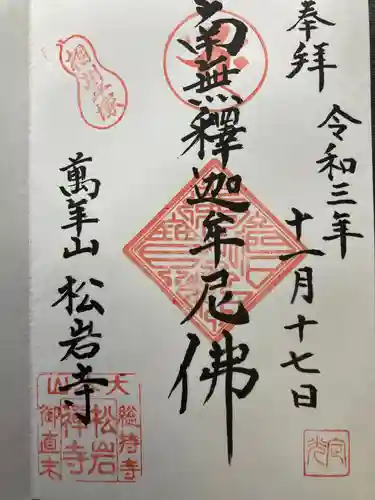 奉拝
令和三年
十一月十七日
南無釋迦牟尼佛
萬年山
松岩寺
大
総持寺
松岩
禅寺
山
御直末